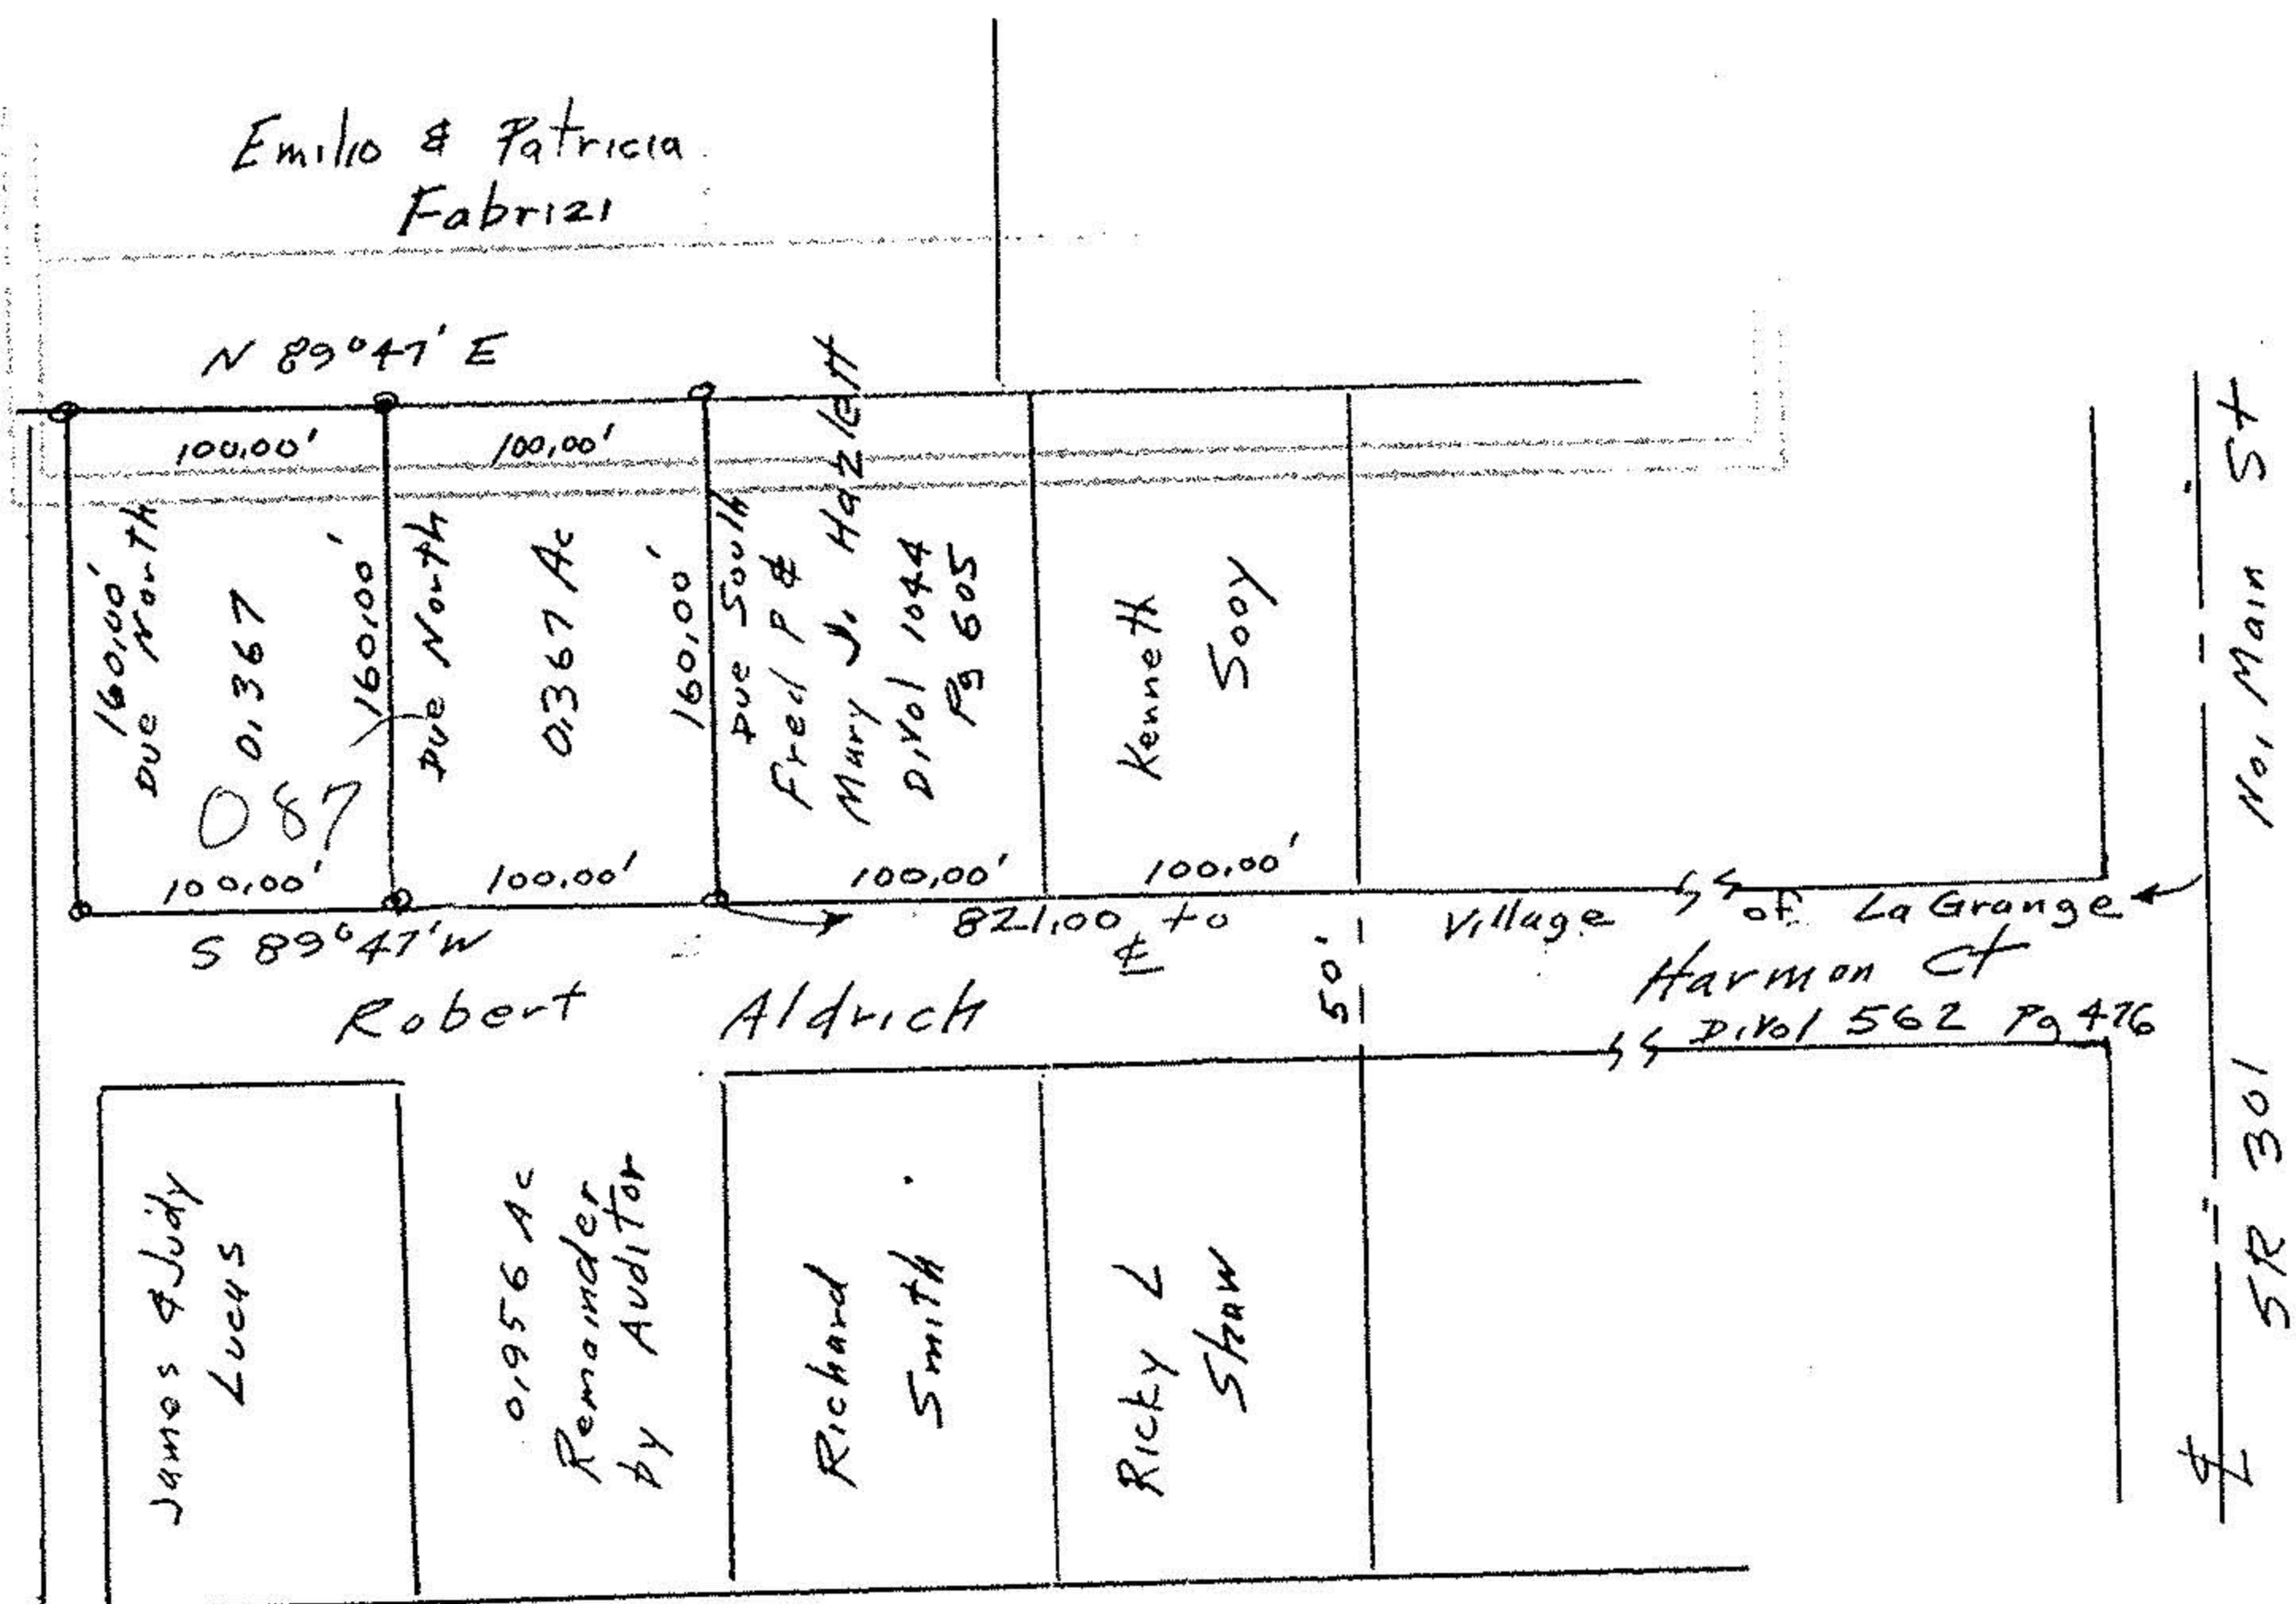 Emilio & Patricia
Fabrizi
N 89°47' E
100.00'
100.00'
160.00'
Due North
0.367
160.00'
Due North
0.367 Ac
160.00'
Due South
Fred P &
Mary J. Hazlett
D.Vol 1044
Pg 605
Kenneth
Sooy
087
100.00'
100.00'
100.00'
100.00'
S 89°47' W
821.00 to
℄
50'
Village of LaGrange
Harmon Ct
D.Vol 562 Pg 476
Robert Aldrich
James & Judy
Lucas
0.1956 Ac
Remainder
by Auditor
Richard
Smith
Ricky L
Shaw
No. Main St
SR 301
℄